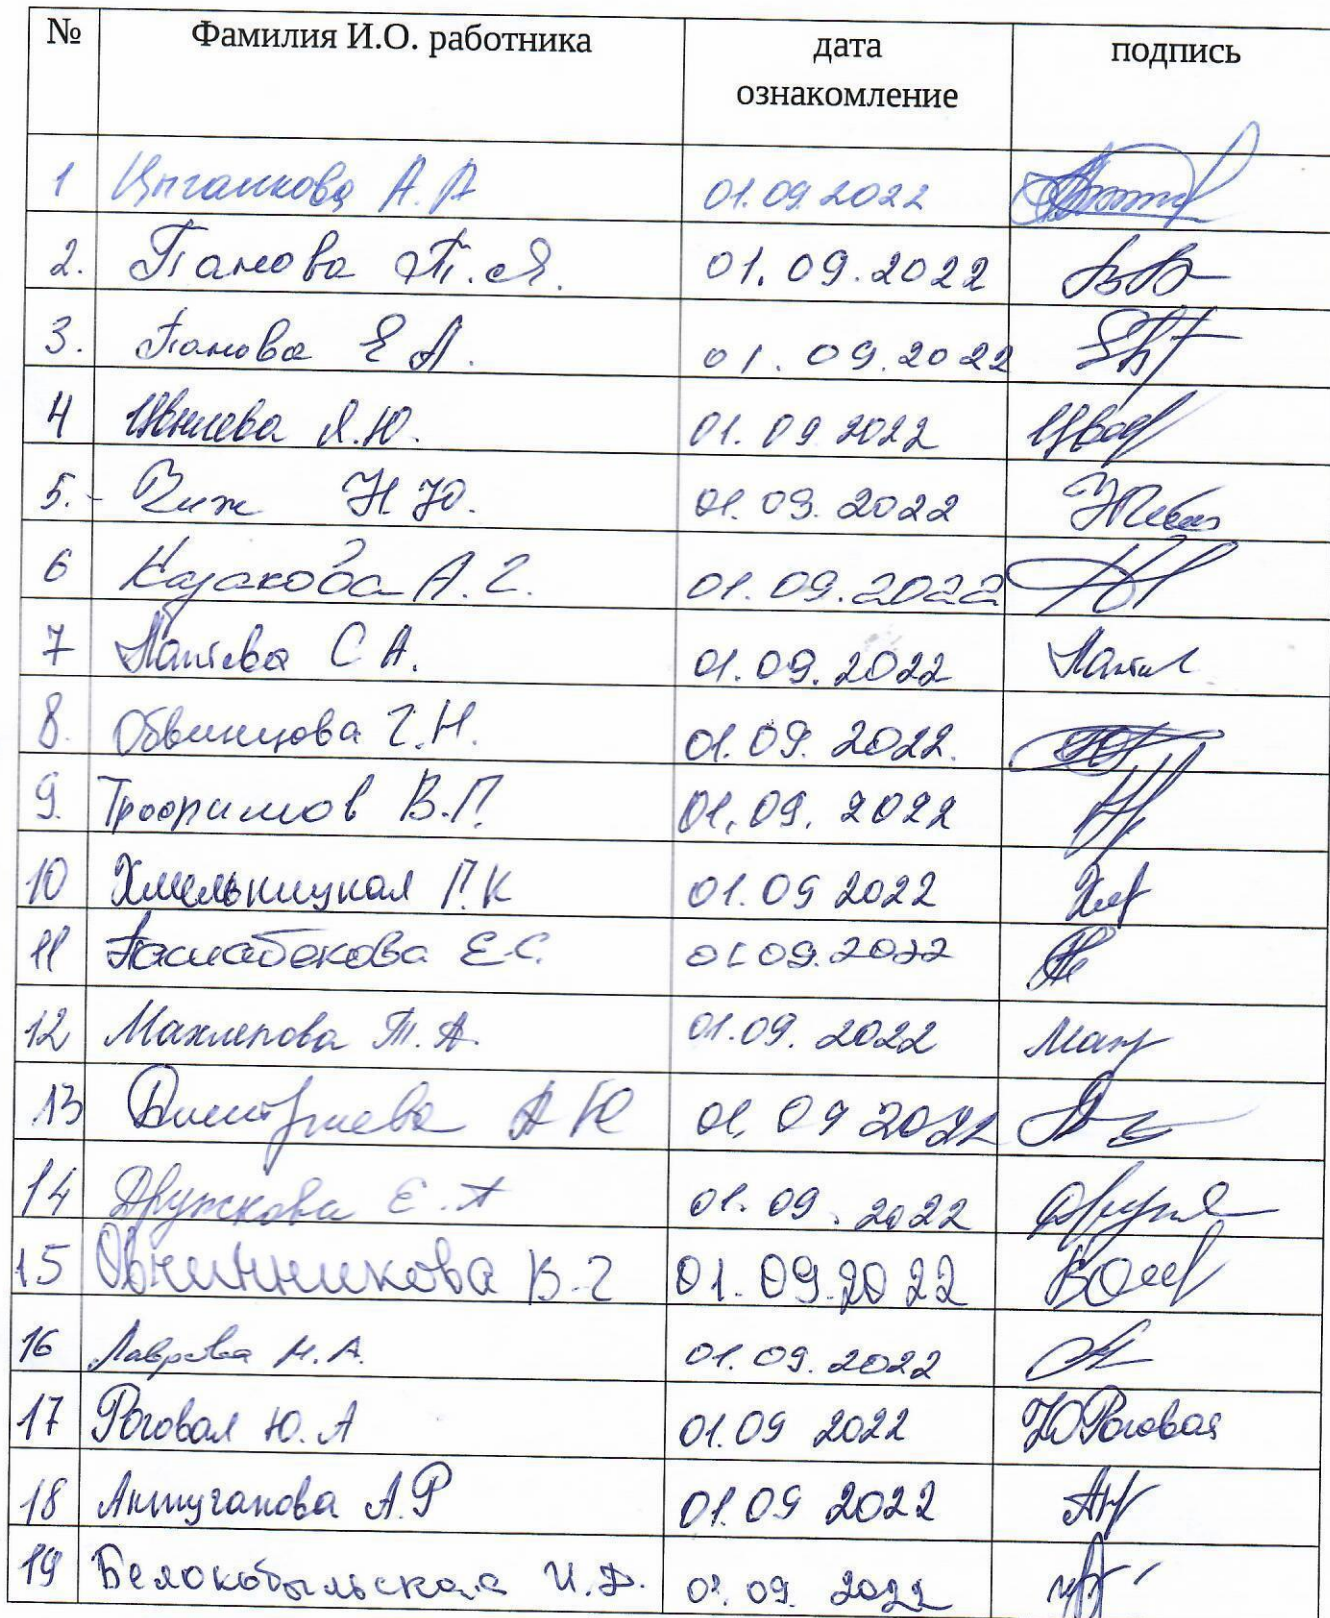 № Фамилия И.О. работника дата ознакомление подпись
1 Цыганкова А.А 01.09.2022
2. Панова Т.Я. 01.09.2022
3. Панова Е А. 01.09.2022
4 Я.Ю. 01.09 2022
5. Чиж Н.Ю. 01.09.2022
6 Казакова А.Г. 01.09.2022
7 С А. 01.09.2022
8. Обвинцова Г.Н. 01.09.2022.
9. Трофимов В.П. 01.09.2022
10 Хмельницкая Г.К 01.09 2022
11 Е.С. 01.09.2022
12 Т.А. 01.09.2022
13 Дмитриева А Ю 01.09 2022
14 Дружкова Е.А 01.09.2022
15 Овчинникова В.Г 01.09.2022
16 Лаврова Н.А. 01.09.2022
17 Роговая Ю.А 01.09 2022 ЮРоговая
18 Антуганова А.Р 01.09 2022
19 Белокобыльская И.Д. 01.09. 2022